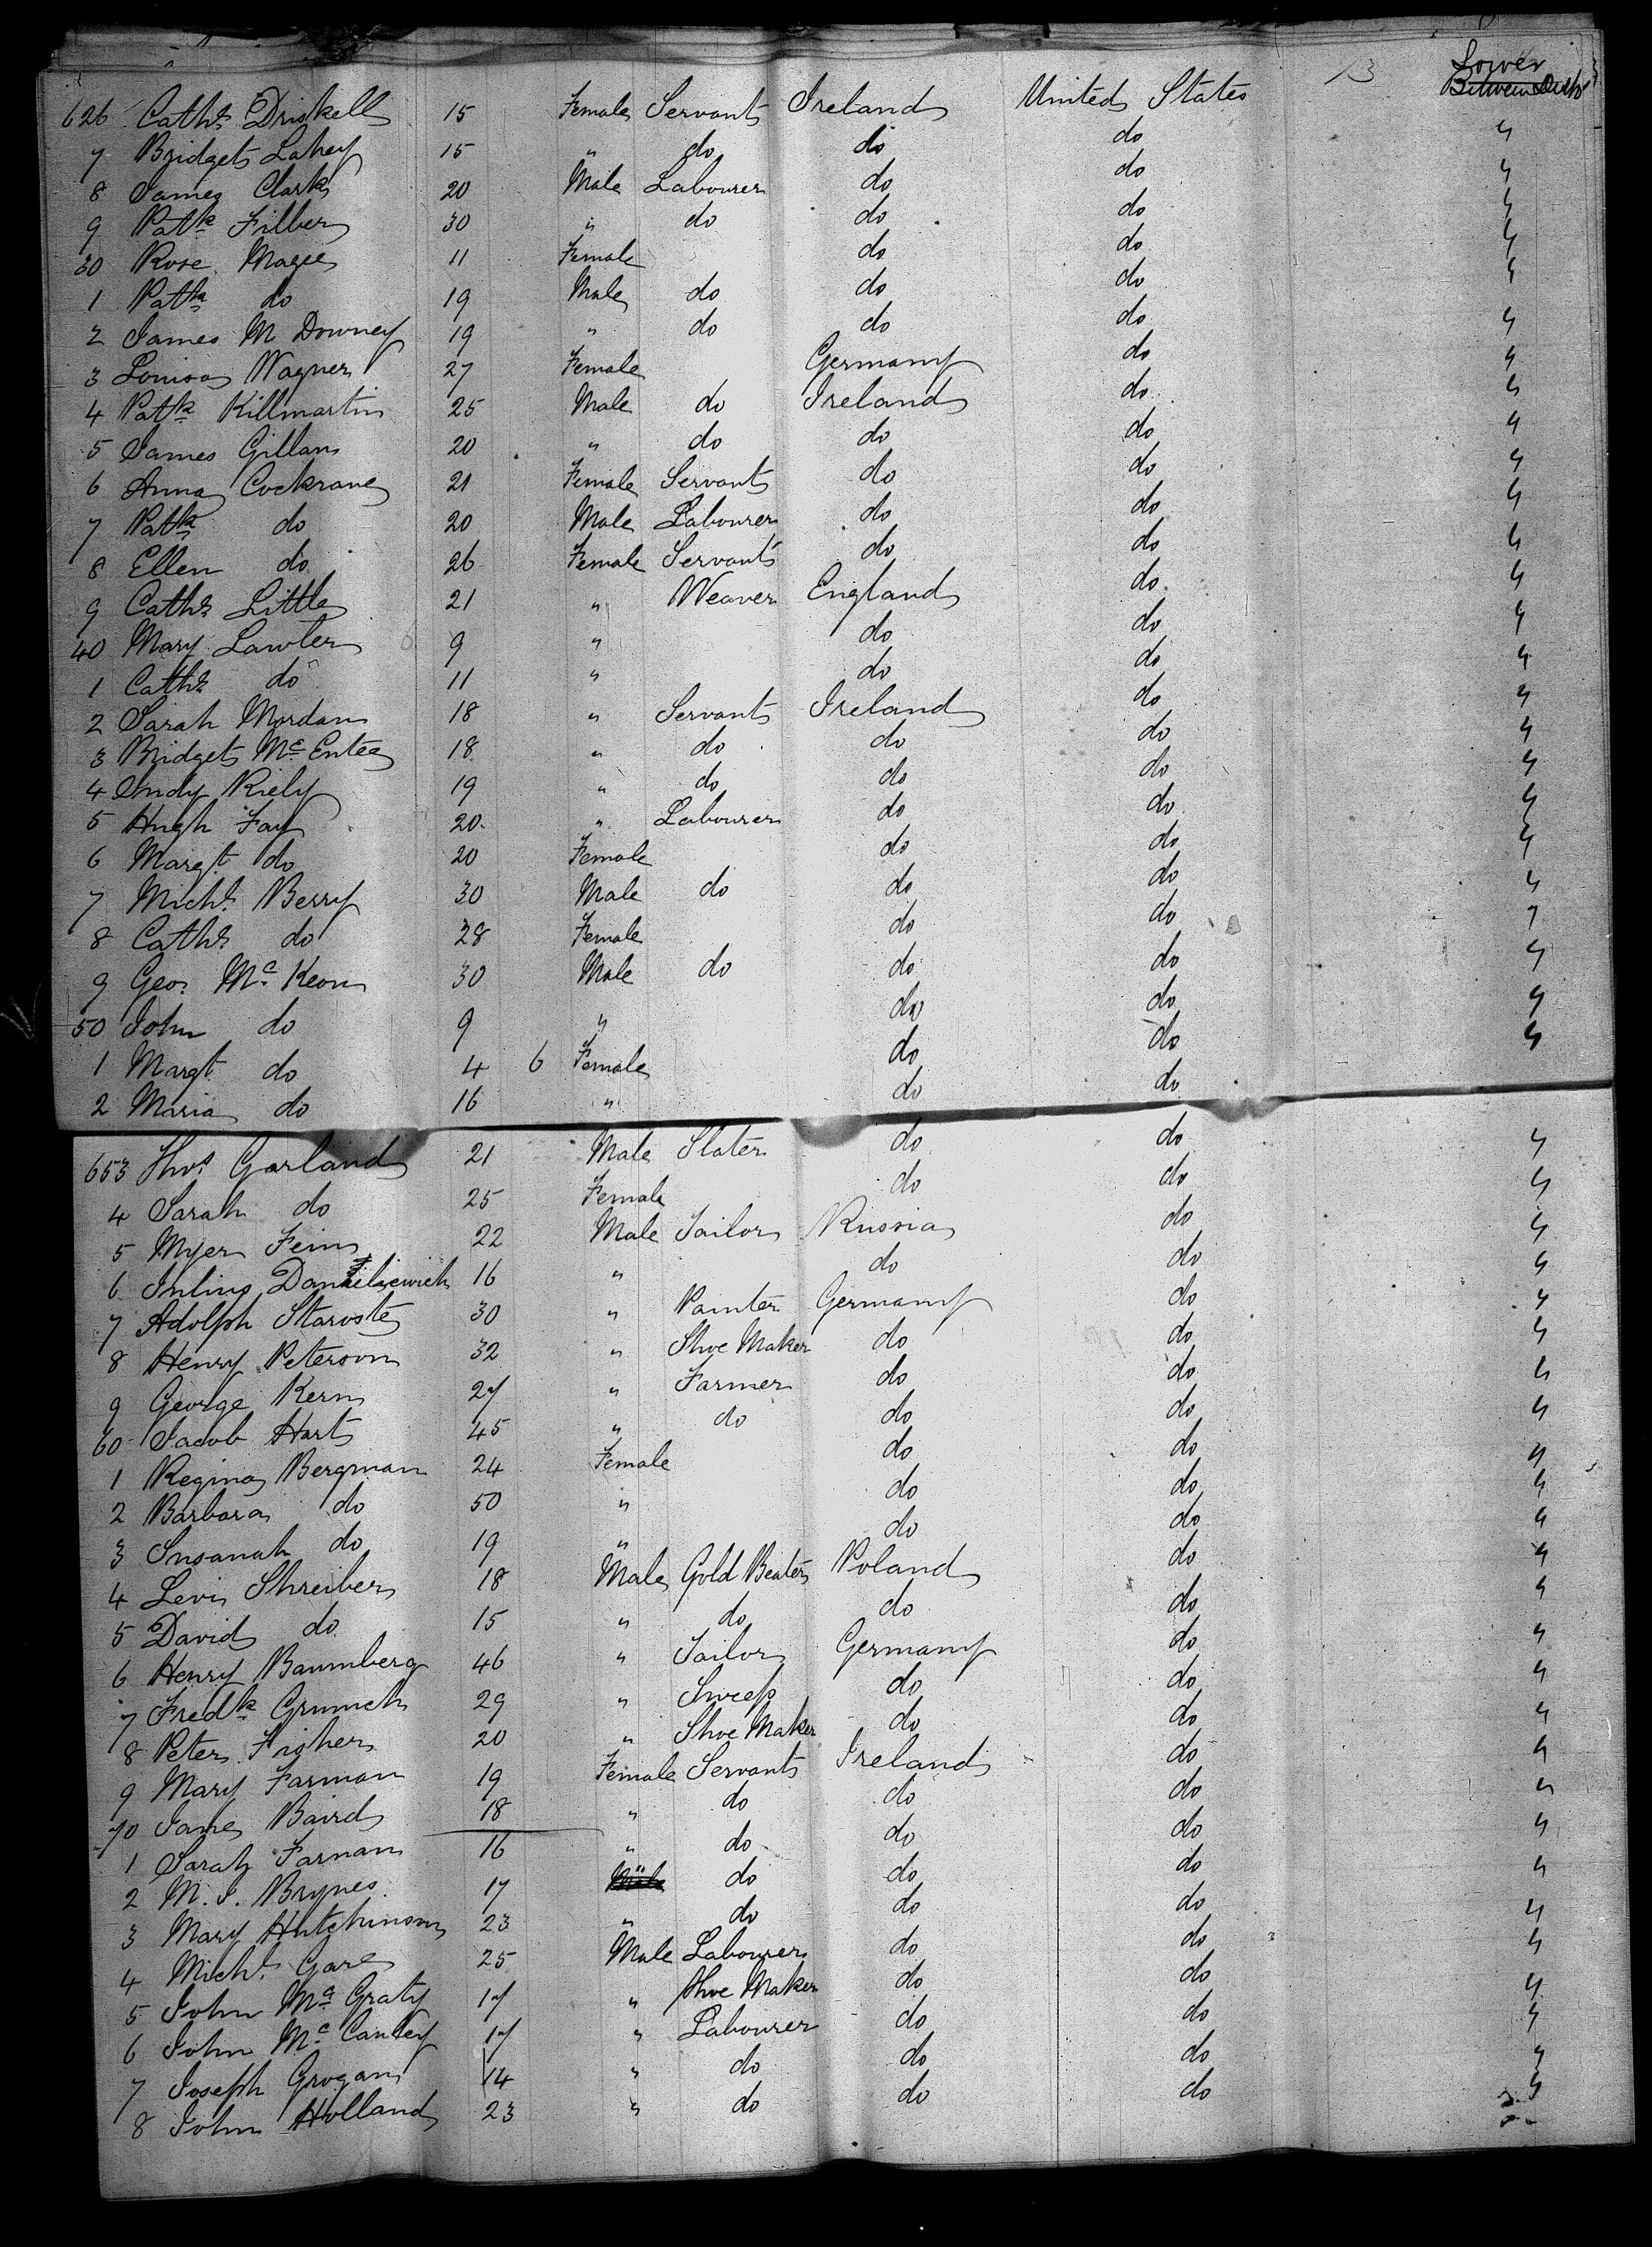 13 Lower
Between Decks
626 Cathe. Driskell 15 Female Servant Ireland United States
7 Bridget Lahey 15 " do do do "
8 James Clark 20 Male Labourer do do "
9 Patk Filben 30 " do do do "
30 Rose Magee 11 Female do do "
1 Patk do 19 Male do do do "
2 James M Downey 19 " do do do "
3 Louisa Wagner 27 Female Germany do "
4 Patk Killmartin 25 Male do Ireland do "
5 James Gillan 20 " do do do "
6 Anna Cockrane 21 Female Servant do do "
7 Patk do 20 Male Labourer do do "
8 Ellen do 26 Female Servant do do "
9 Cathe. Little 21 " Weaver England do "
40 Mary Lawler 9 " do do "
1 Cathe. do 11 " do do "
2 Sarah Mordan 18 " Servant Ireland do "
3 Bridget Mc Entee 18 " do do do "
4 Judy Riely 19 " do do do "
5 Hugh Fay 20 " Labourer do do "
6 Margt. do 20 Female do do "
7 Michl. Berry 30 Male do do do "
8 Cathe. do 28 Female do do "
9 Geo. Mc Keon 30 Male do do do "
50 John do 9 " do do "
1 Margt do 4 6 Female do do "
2 Maria do 16 " do do
653 Thos. Garland 21 Male Slater do do "
4 Sarah do 25 Female do do "
5 Myer Fein 22 Male Tailor Russia do "
6 Julius 16 " do do "
7 Adolph Staroste 30 " Painter Germany do "
8 Henry Peterson 32 " Shoe Maker do do "
9 George Kern 27 " Farmer do do "
60 Jacob Hart 45 " do do do "
1 Regina Bergman 24 Female do do "
2 Barbara do 50 " do do "
3 Susanah do 19 " do do "
4 Levi Shreiber 18 Male Gold Beater Poland do "
5 David do 15 " do do do "
6 Henry Baumberg 46 " Tailor Germany do "
7 Fredk Grumch 29 " Sweep do do "
8 Peter Fisher 20 " Shoe Maker do do "
9 Mary Farman 19 Female Servant Ireland do "
70 Jane Baird 18 " do do do "
1 Sarah Farnan 16 " do do do "
2 M. J. Brynes 17 " do do do "
3 Mary Hutchinson 23 " do do do "
4 Michl. Gare 25 Male Labourer do do "
5 John Mc Graty 17 " Shoe Maker do do "
6 John Mc Canley 17 " Labourer do do "
7 Joseph Grogan 14 " do do do "
8 John Holland 23 " do do do "